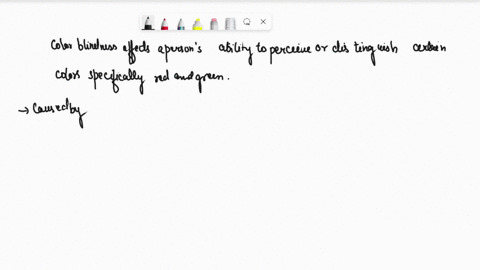 Color blindness effects a person's ability to perceive or distinguish certain
colors specifically red and green.
→ Caused by